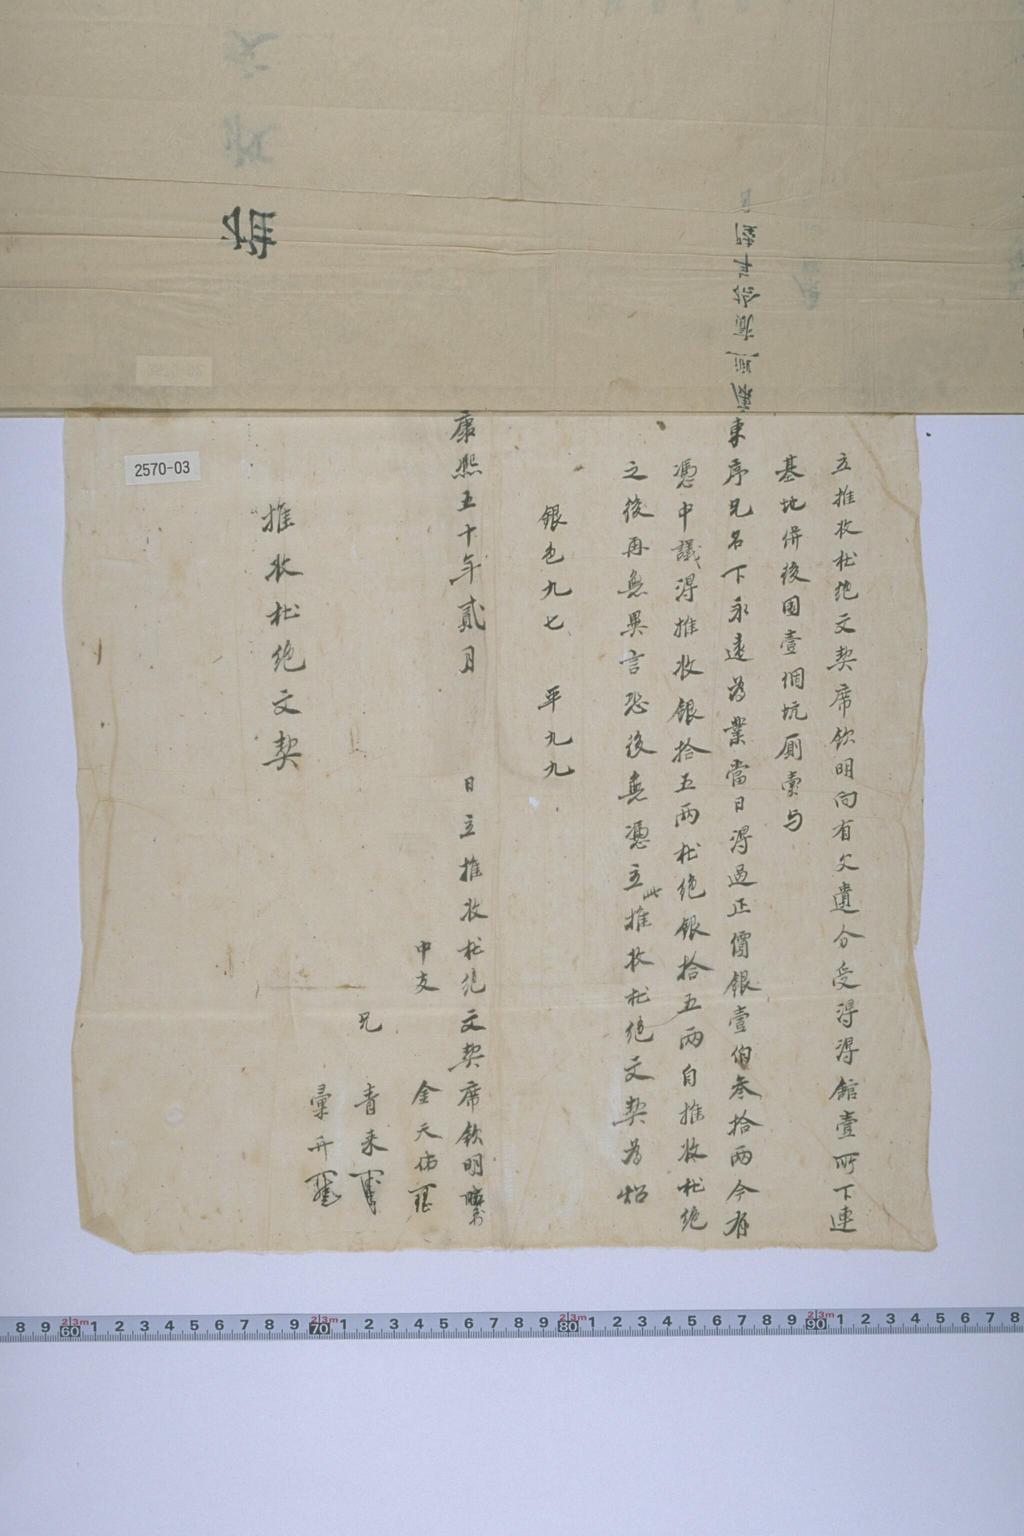 立推收杜絶文契席欽明向有父遺分受得得館壹所下連
基地併後園壹個坑厠賣与
東序兄名下永遠為業當日得過正價銀壹伯叁拾兩今有
憑中議得推收銀拾五兩杜絶銀拾五兩自推收杜絶
之後再無異言恐後無憑立此推收杜絶文契為炤
銀色九七 平九九
康熙五十年貳月 日立推收杜絶文契席欽明
中支 金天佑
兄 青来
彙升
推收杜絶文契
2570-03